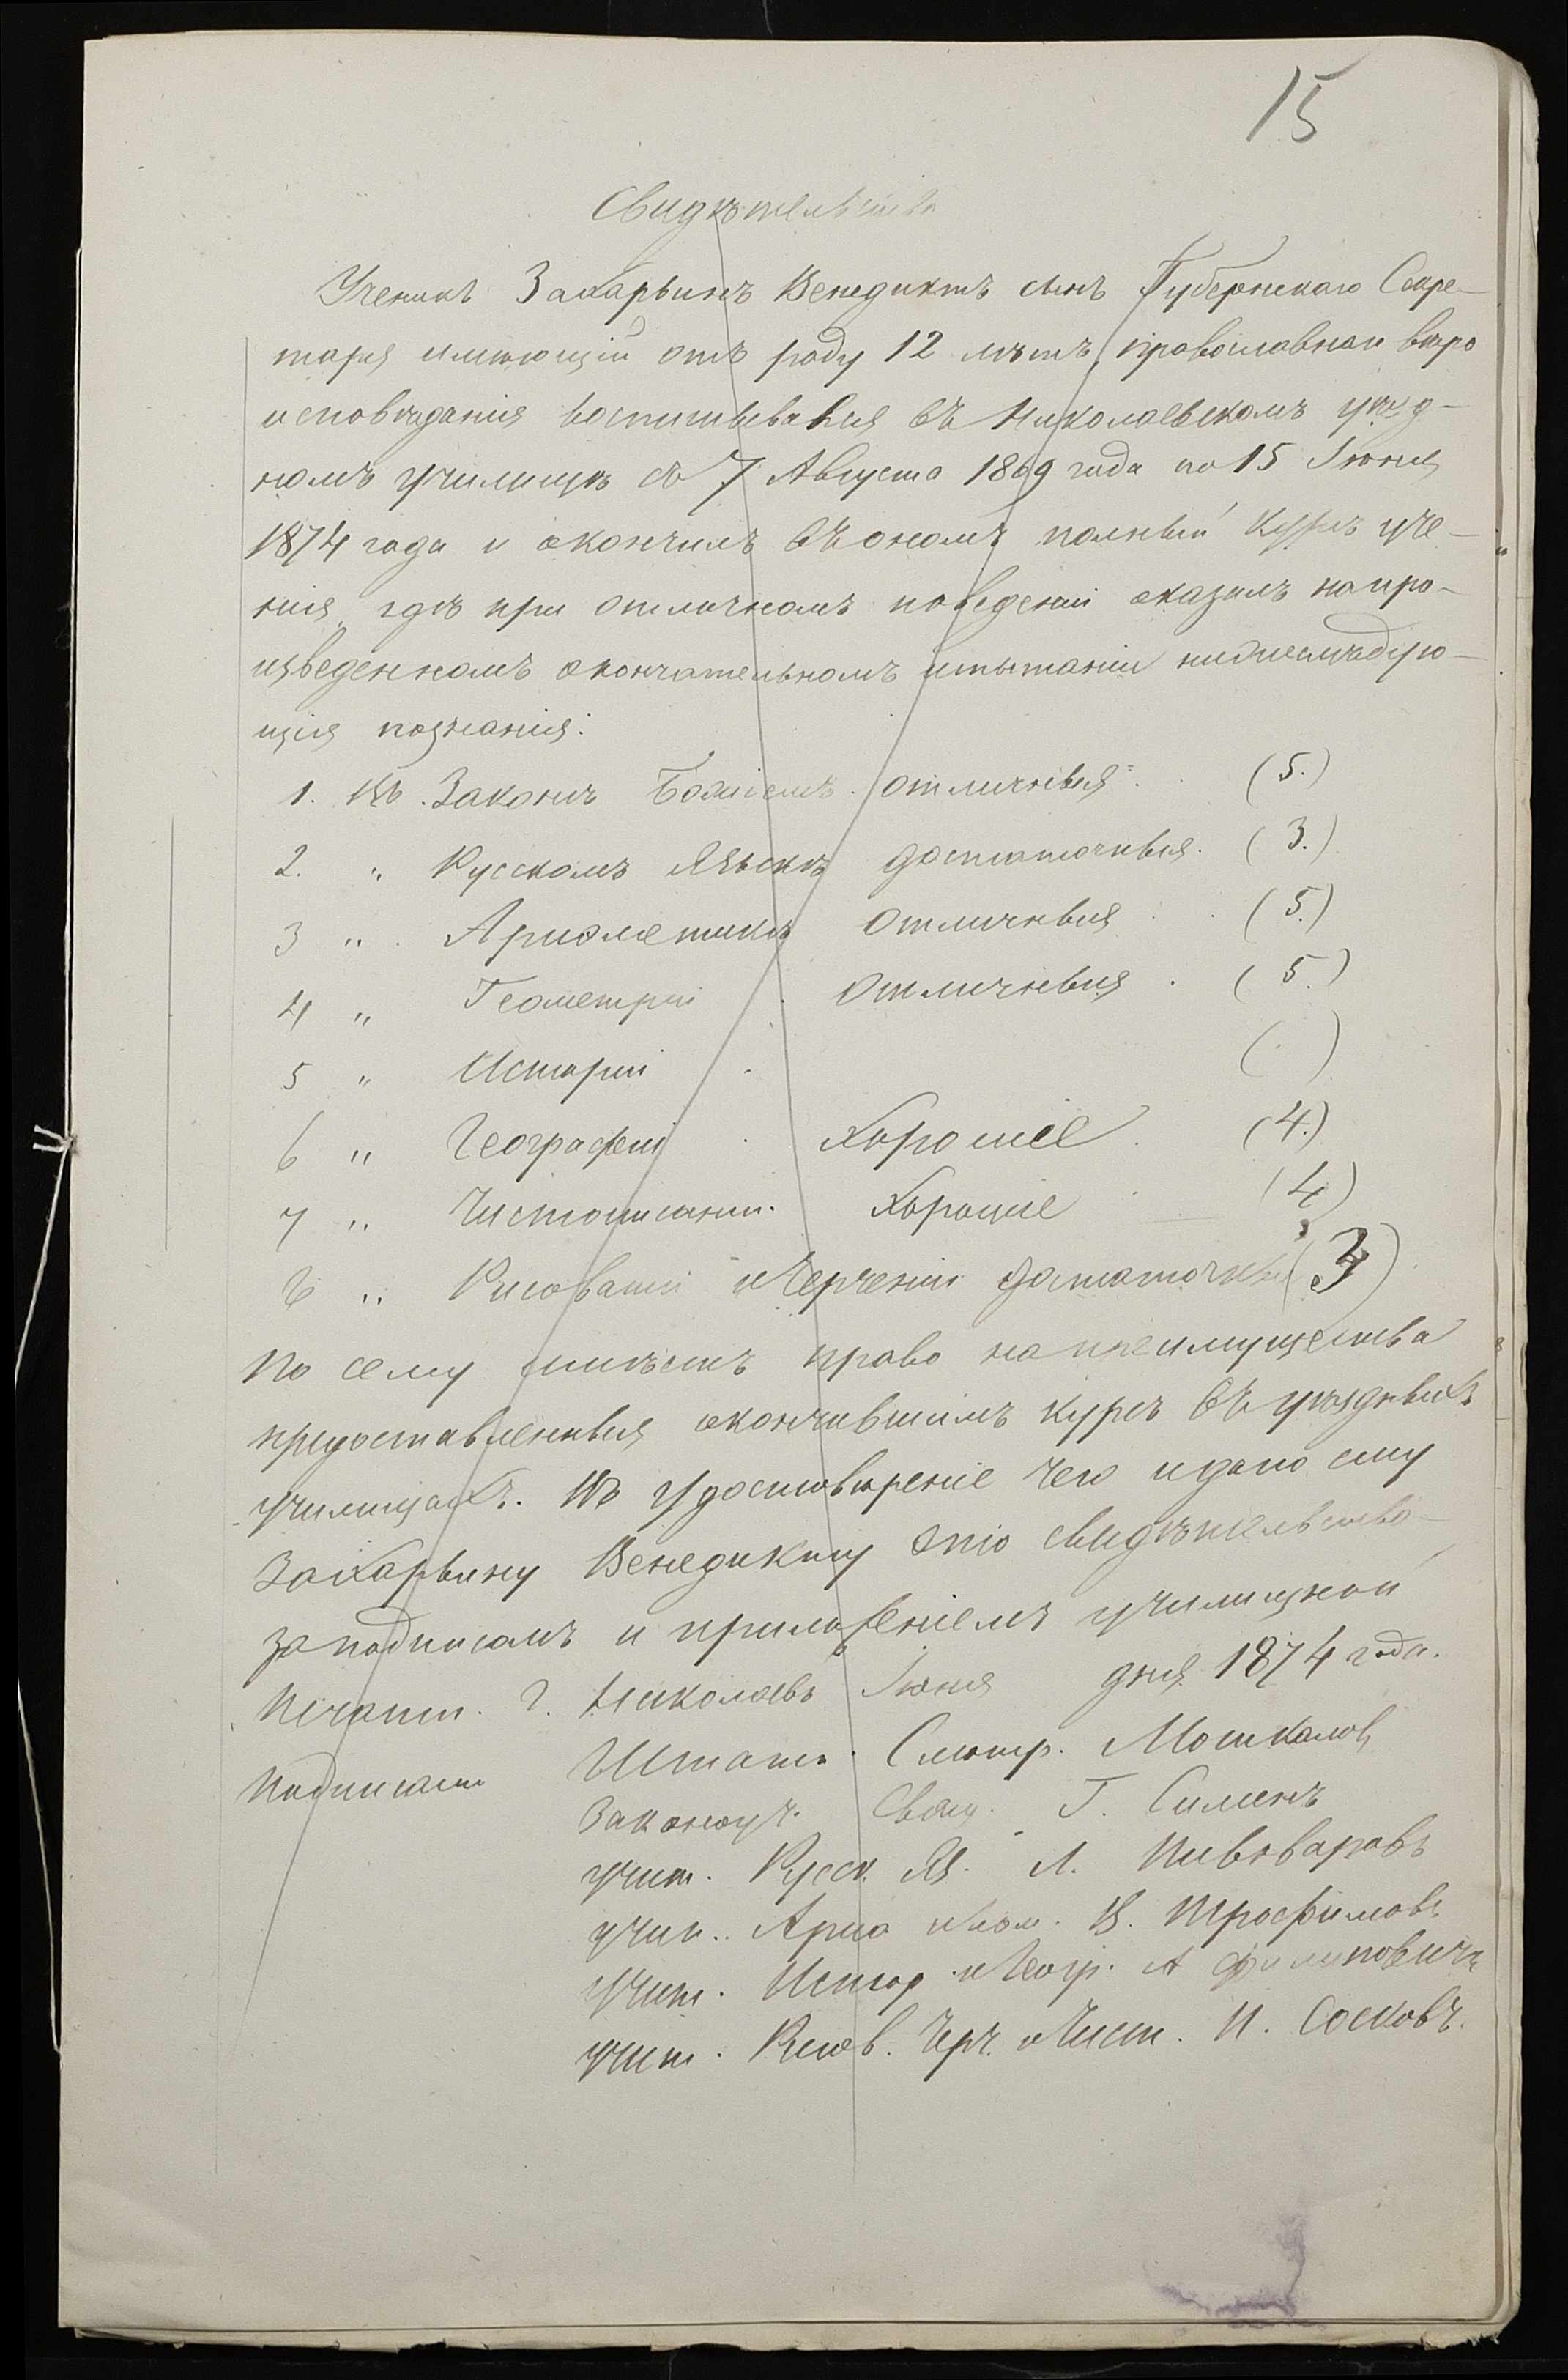 15
Свидѣтельство
Ученикъ Захарьинъ Венедиктъ сынъ Губернскаго Секре-
таря имѣющій отъ роду 12 лѣтъ, православнаго вѣро
исповѣданія воспитывался въ Николаевскомъ уѣзд-
номъ училищѣ съ 7 Августа 1869 года по 15 Іюня
1874 года и окончилъ въ ономъ полный курсъ уче-
нія, гдѣ при отличномъ поведеніи оказалъ на про-
изведенномъ окончательномъ испытаніи нижеслѣдую-
щія познанія:
1. Въ Законѣ Божіемъ отличныя (5.)
2. „ Русскомъ Языкѣ достаточныя. (3.)
3 „ Ариѳметикѣ отличныя (5.)
4 „ Геометріи отличныя (5.)
5 „ Исторіи ( )
6 „ Географіи хорошіе (4.)
7 „ Чистописаніи. хорошіе (4)
8 „ Рисованіи и Черченіи достаточны (3)
по сему имѣетъ право на преимущества
предоставленныя окончившимъ курсъ въ уѣздныхъ
училищахъ. Въ удостовѣреніе чего и дано ему
Захарьину Венедикту это свидѣтельство
за подписомъ и приложеніемъ училищной
печати. Г. Николаевъ Іюня дня 1874 года.
Подписали Штатн. Смотр. Мошкалов
Законоуч. Свящ. Г. Сименъ
учит. Русск. Яз. Л. Пивоваровъ
учит. Ариѳ и Геом. В. Трофимовъ
учит. Истор. и Геогр. А Филиповичъ
учит. Рисов. Черч. и Чист. И. Сосковъ.